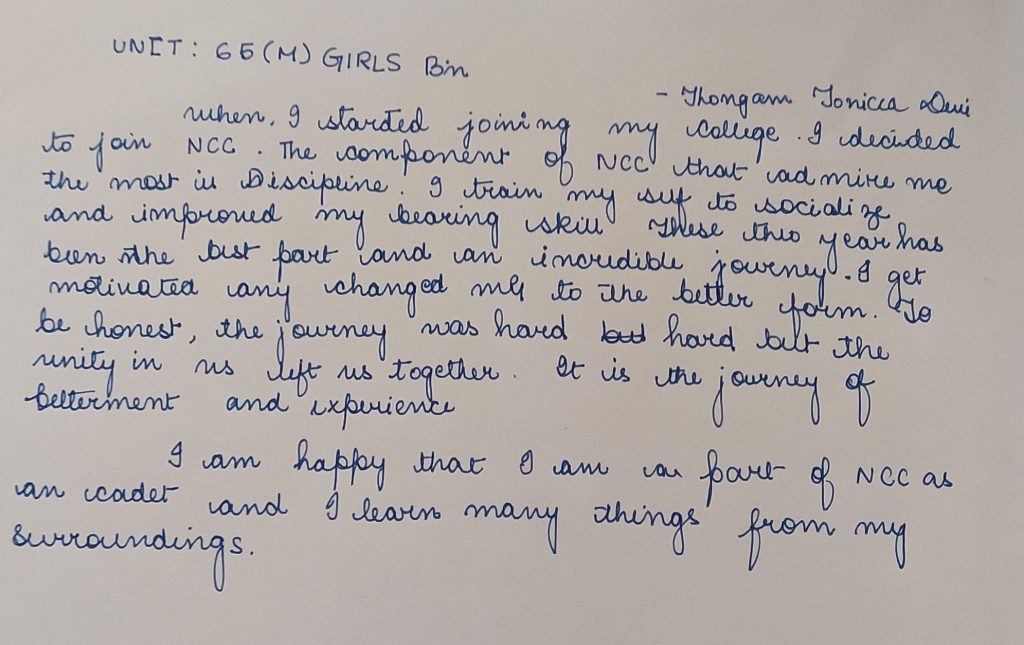 UNIT: 65(M) GIRLS Bn
- Thongam Tonicca Devi
when, I started joining my college. I decided
to join NCC. The component of NCC that admire me
the most is Discipline. I train my self to socialize
and improved my bearing skill These two year has
been the best part and an incredible journey. I get
motivated any changed me to the better form. To
be honest, the journey was hard but hard but the
unity in us left us together. It is the journey of
betterment and experience
I am happy that I am a part of NCC as
an cadet and I learn many things from my
surroundings.